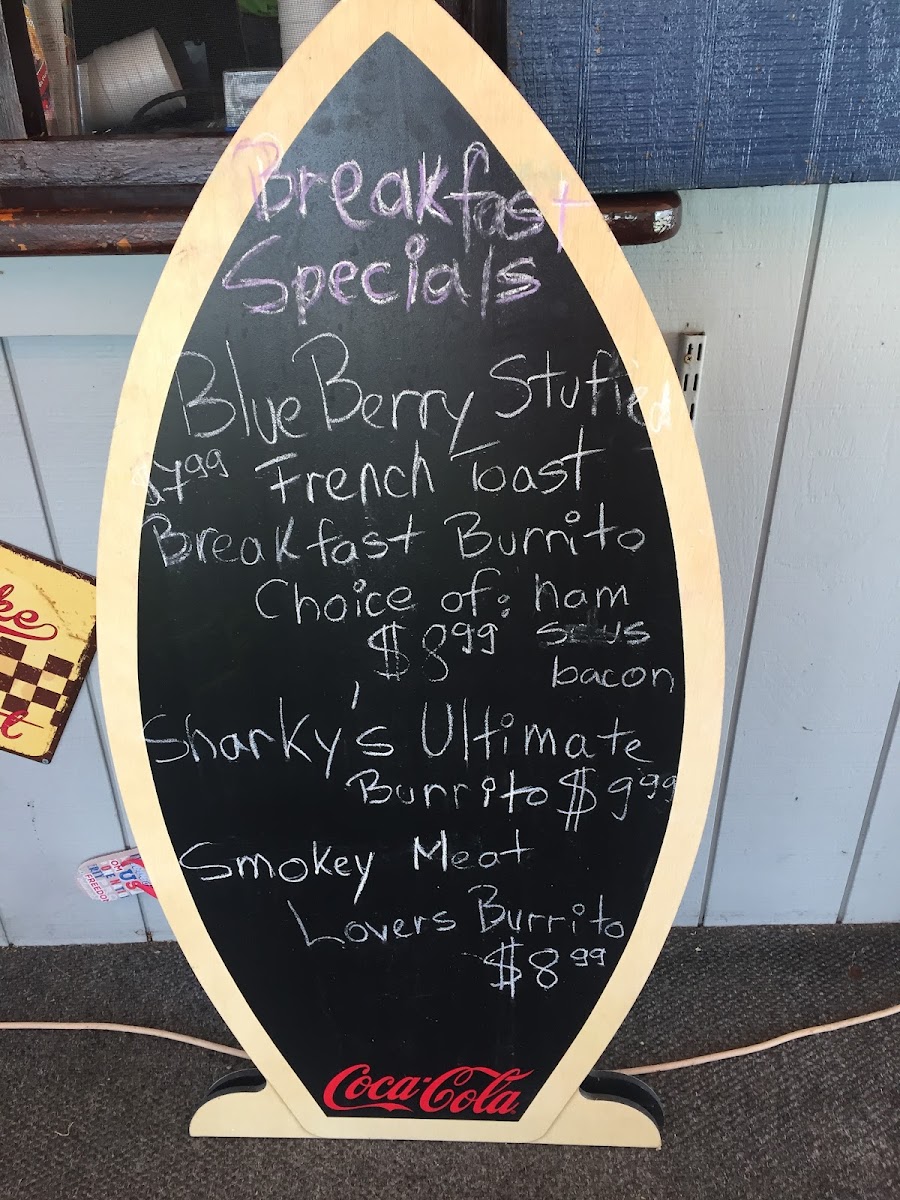 Breakfast
Specials
BlueBerry Stuffed
$7.99 French Toast
Breakfast Burrito
Choice of: ham
$8.99 saus
bacon
Sharky's Ultimate
Burrito $9.99
Smokey Meat
Lovers Burrito
$8.99
Coca-Cola
ke
FREEDOM